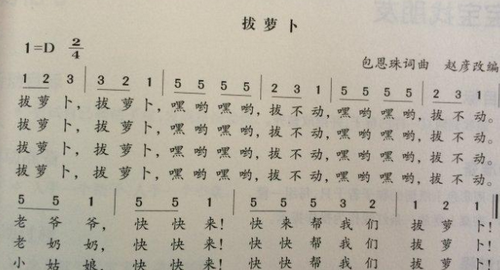 拔萝卜
1=D 2/4
包恩珠词曲 赵彦改编
1 2 3 | 3 2 1 | 5 5 5 5 | 2 3 1 | 5 5 5 5 | 2 3 1 |
拔 萝 卜, 拔 萝 卜, 嘿 哟 嘿 哟, 拔 不 动, 嘿 哟 嘿 哟, 拔 不 动。
拔 萝 卜, 拔 萝 卜, 嘿 哟 嘿 哟, 拔 不 动, 嘿 哟 嘿 哟, 拔 不 动。
拔 萝 卜, 拔 萝 卜, 嘿 哟 嘿 哟, 拔 不 动, 嘿 哟 嘿 哟, 拔 不 动。
拔 萝 卜, 拔 萝 卜, 嘿 哟 嘿 哟, 拔 不 动, 嘿 哟 嘿 哟, 拔 不 动。
5 5 1 | 5 5 1 | 5 5 5 5 3 2 | 1 2 1 ‖
老 爷 爷, 快 快 来! 快 来 帮 我 们 拔 萝 卜!
老 奶 奶, 快 快 来! 快 快 帮 我 们 拔 萝 卜!
小 姑 娘, 快 快 来! 快 快 帮 我 们 拔 萝 卜!